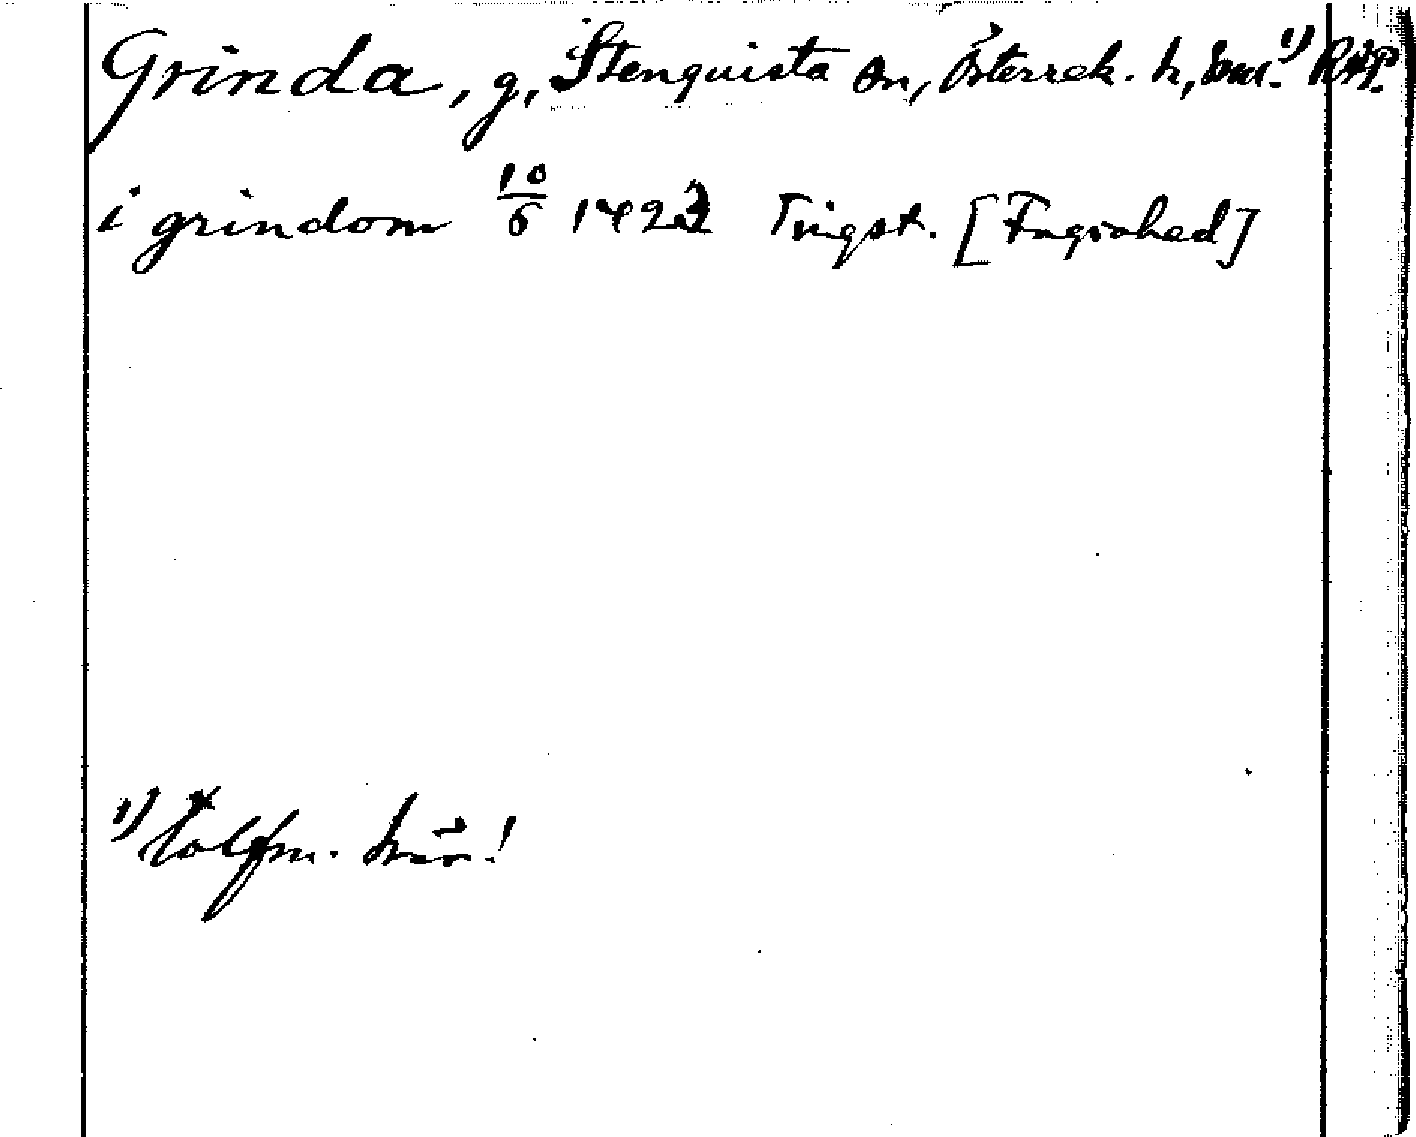 Grinda, g, Stenquista sn, Österrek. h, Sm.¹⁾ RAP.
i grindom 10/6 1422 Tingst. [Fugvohed]
¹⁾